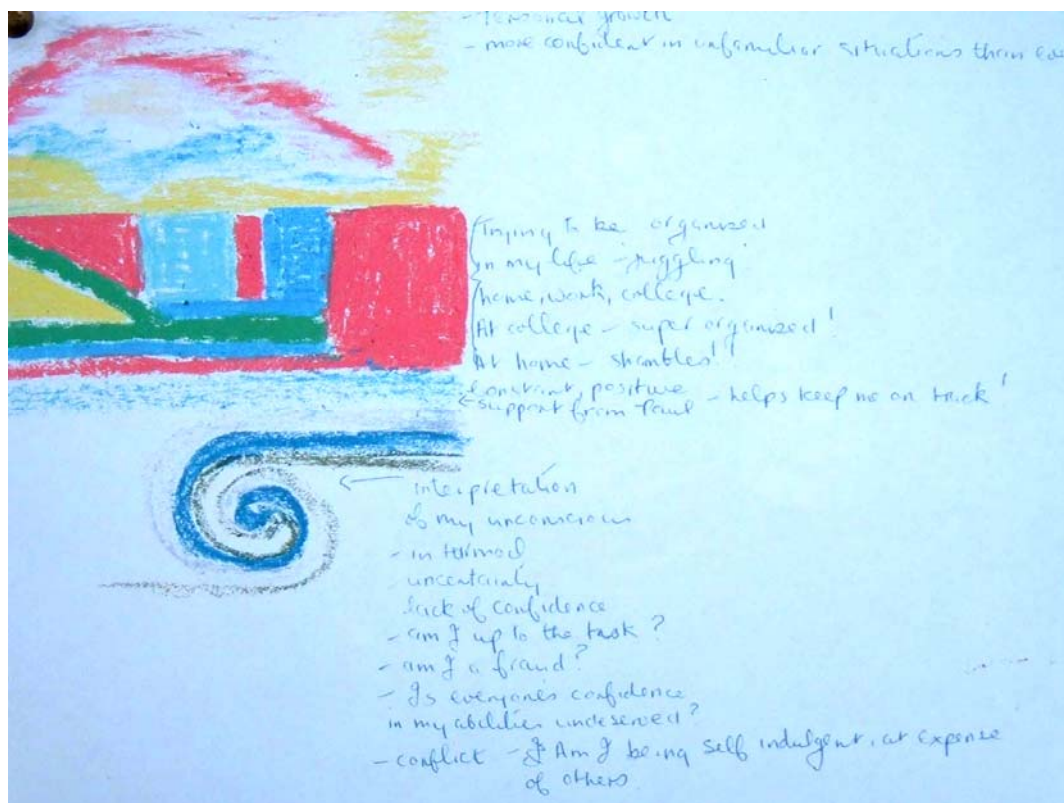 - Personal growth
- more confident in unfamiliar situations than
Trying to be organized
in my life - juggling
home, work, college.
At college - super organized!
At home - shambles!!
Constant, positive
support from Paul - helps keep me on track!
interpretation
of my unconscious
- in turmoil
uncertainty
lack of confidence
- am I up to the task?
- am I a fraud?
- Is everyone's confidence
in my abilities undeserved?
- conflict - Am I being self indulgent, at expense
of others